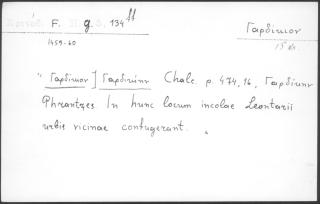 F. g. 134 Γαρδίκιον
1459-60 15 Jh.
"Γαρδικιον] Γαρδικίην Chalc. p. 474, 16, Γαρδίκην
Phrantzes In hunc locum incolae Leontarii
urbis vicinae confugerant.